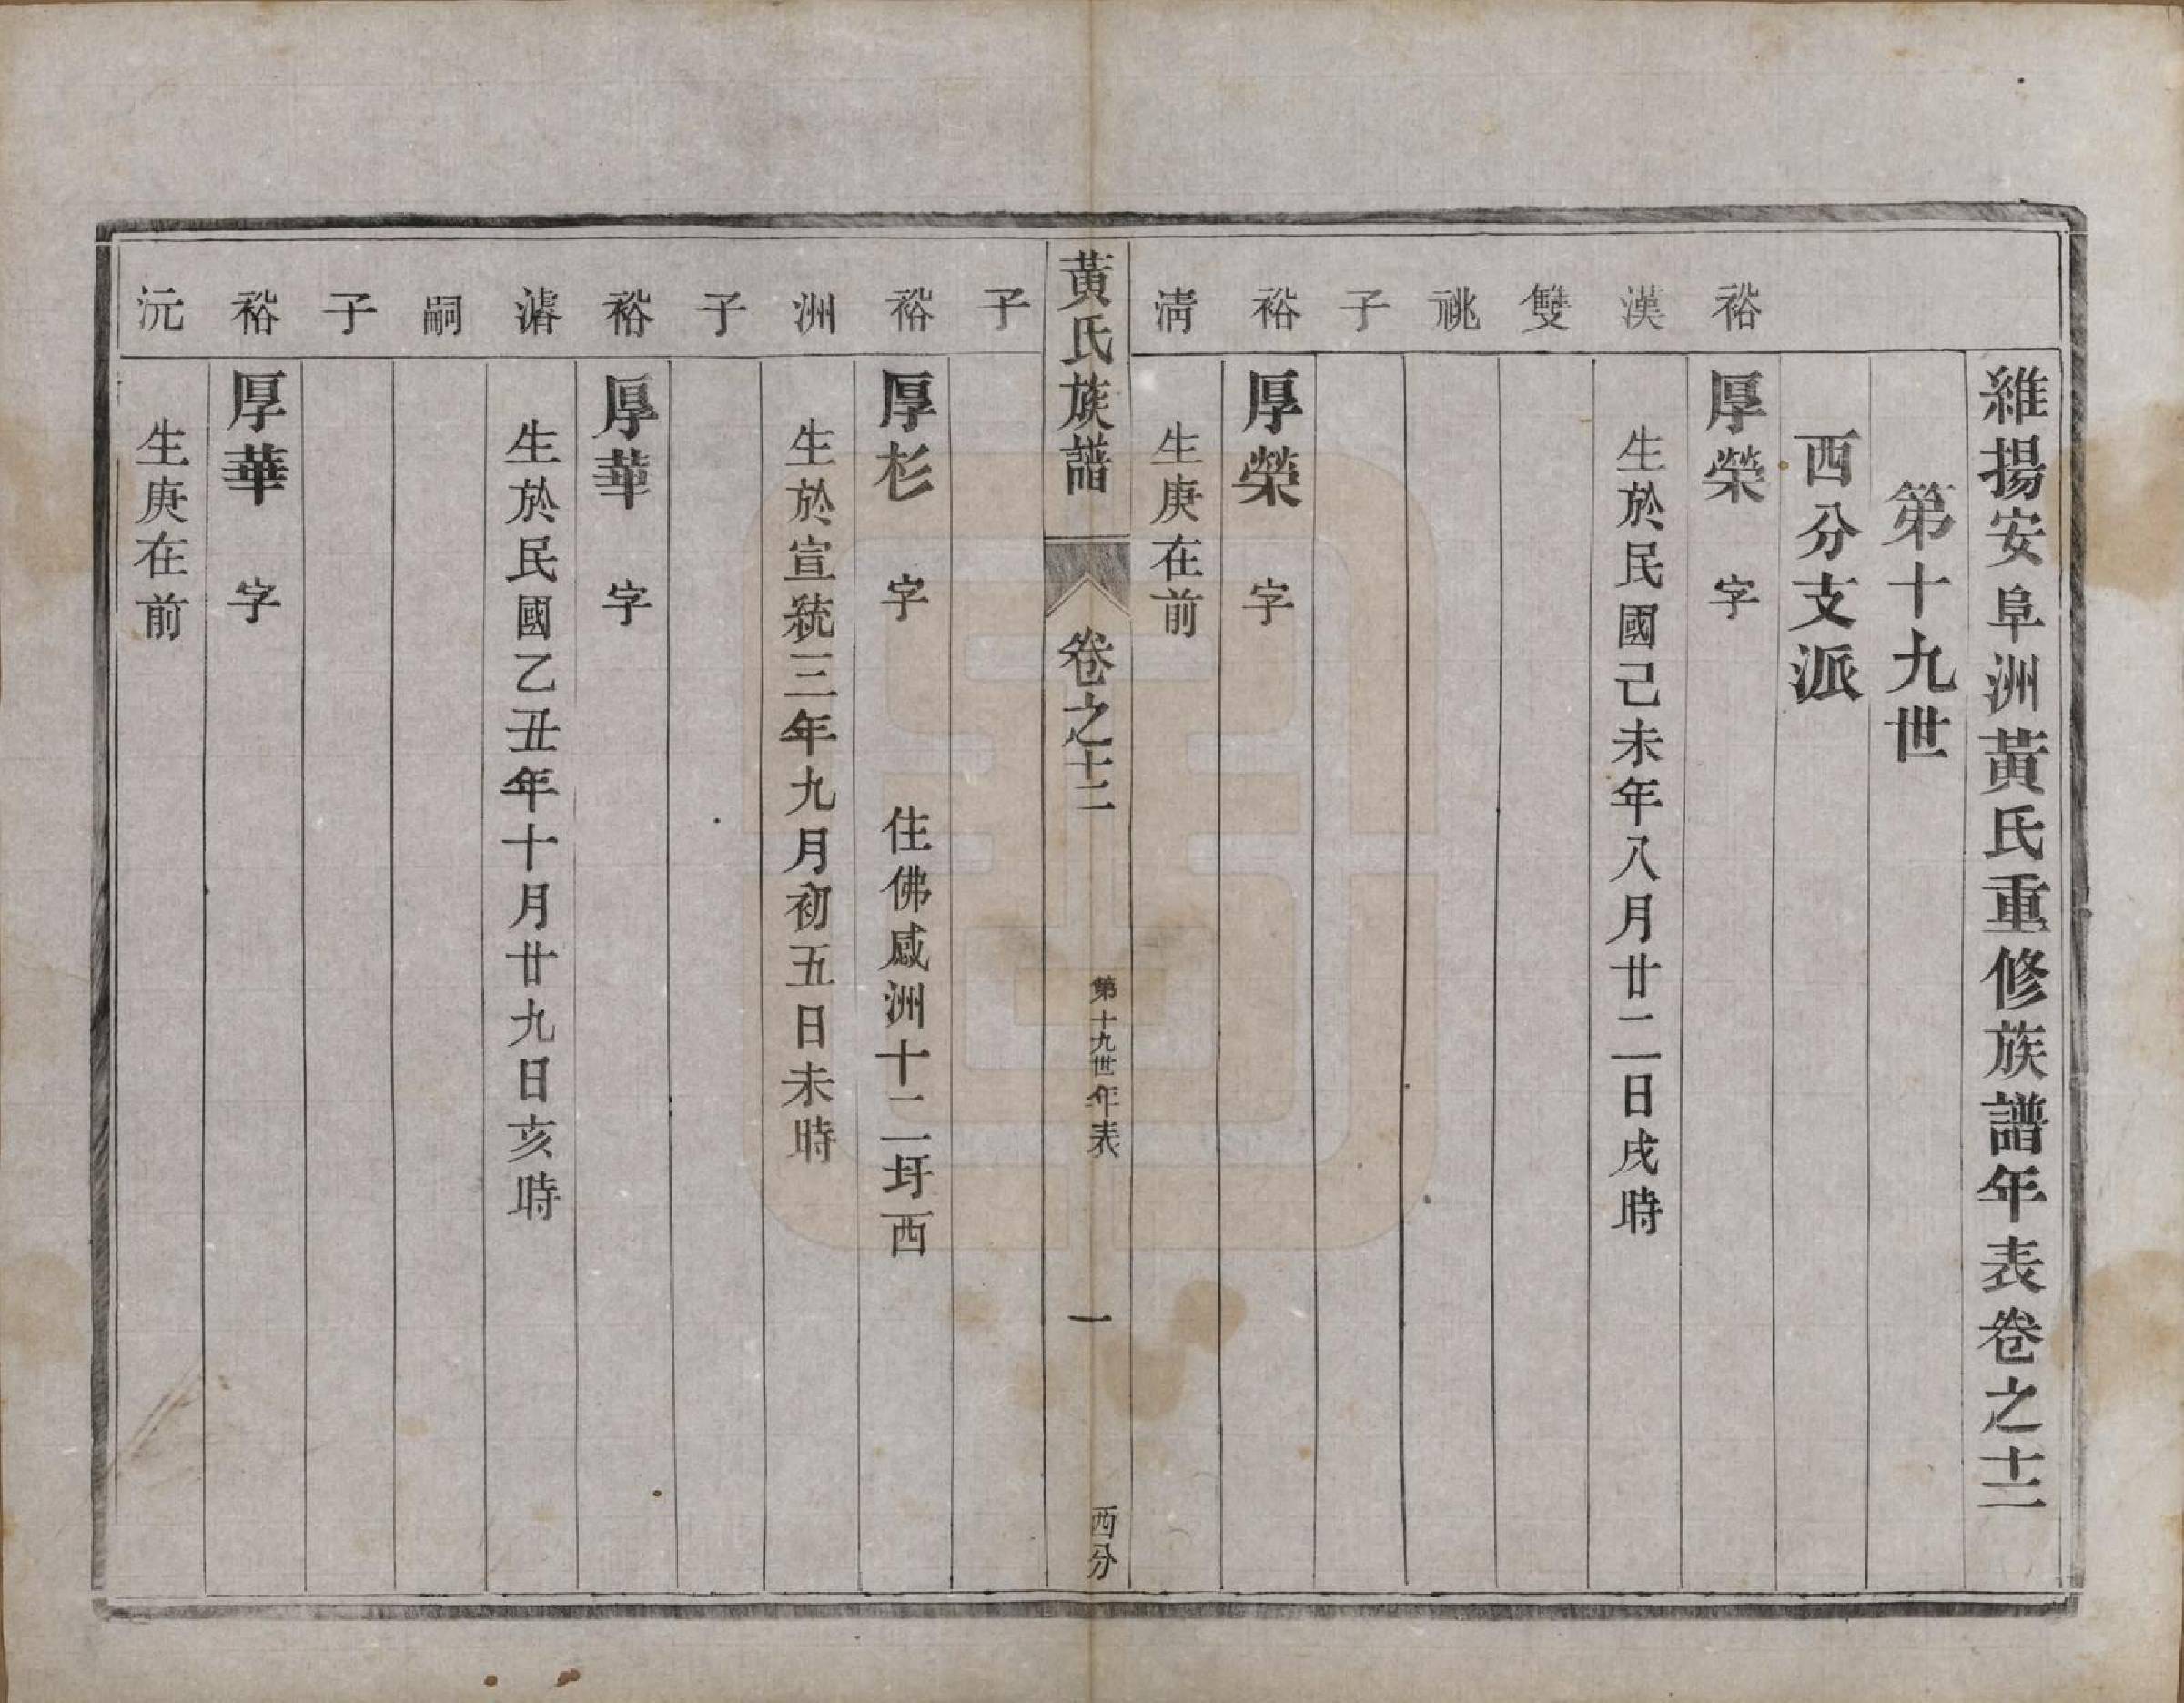 維揚安阜洲黃氏重修族譜年表卷之十二
第十九世
西分支派
裕漢雙祧子
厚榮 字
生於民國己未年八月廿二日戌時
裕清子
厚榮 字
生庚在前
黃氏族譜 卷之十二 第十九世年表 一 西分
裕洲子
厚杉 字 住佛感洲十二圩西
生於宣統三年九月初五日未時
裕濬嗣子
厚華 字
生於民國乙丑年十月廿九日亥時
裕沅
厚華 字
生庚在前